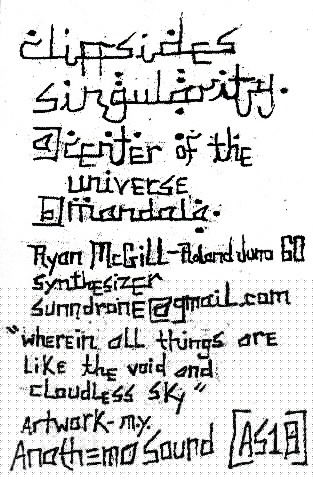 cliffsides
singularity.
a center of the
universe
b mandala.
Ryan McGill-Roland Juno 60
synthesizer
sunndrone@gmail.com
"wherein all things are
like the void and
cloudless sky"
Artwork-m.y.
Anathema Sound [AS18]